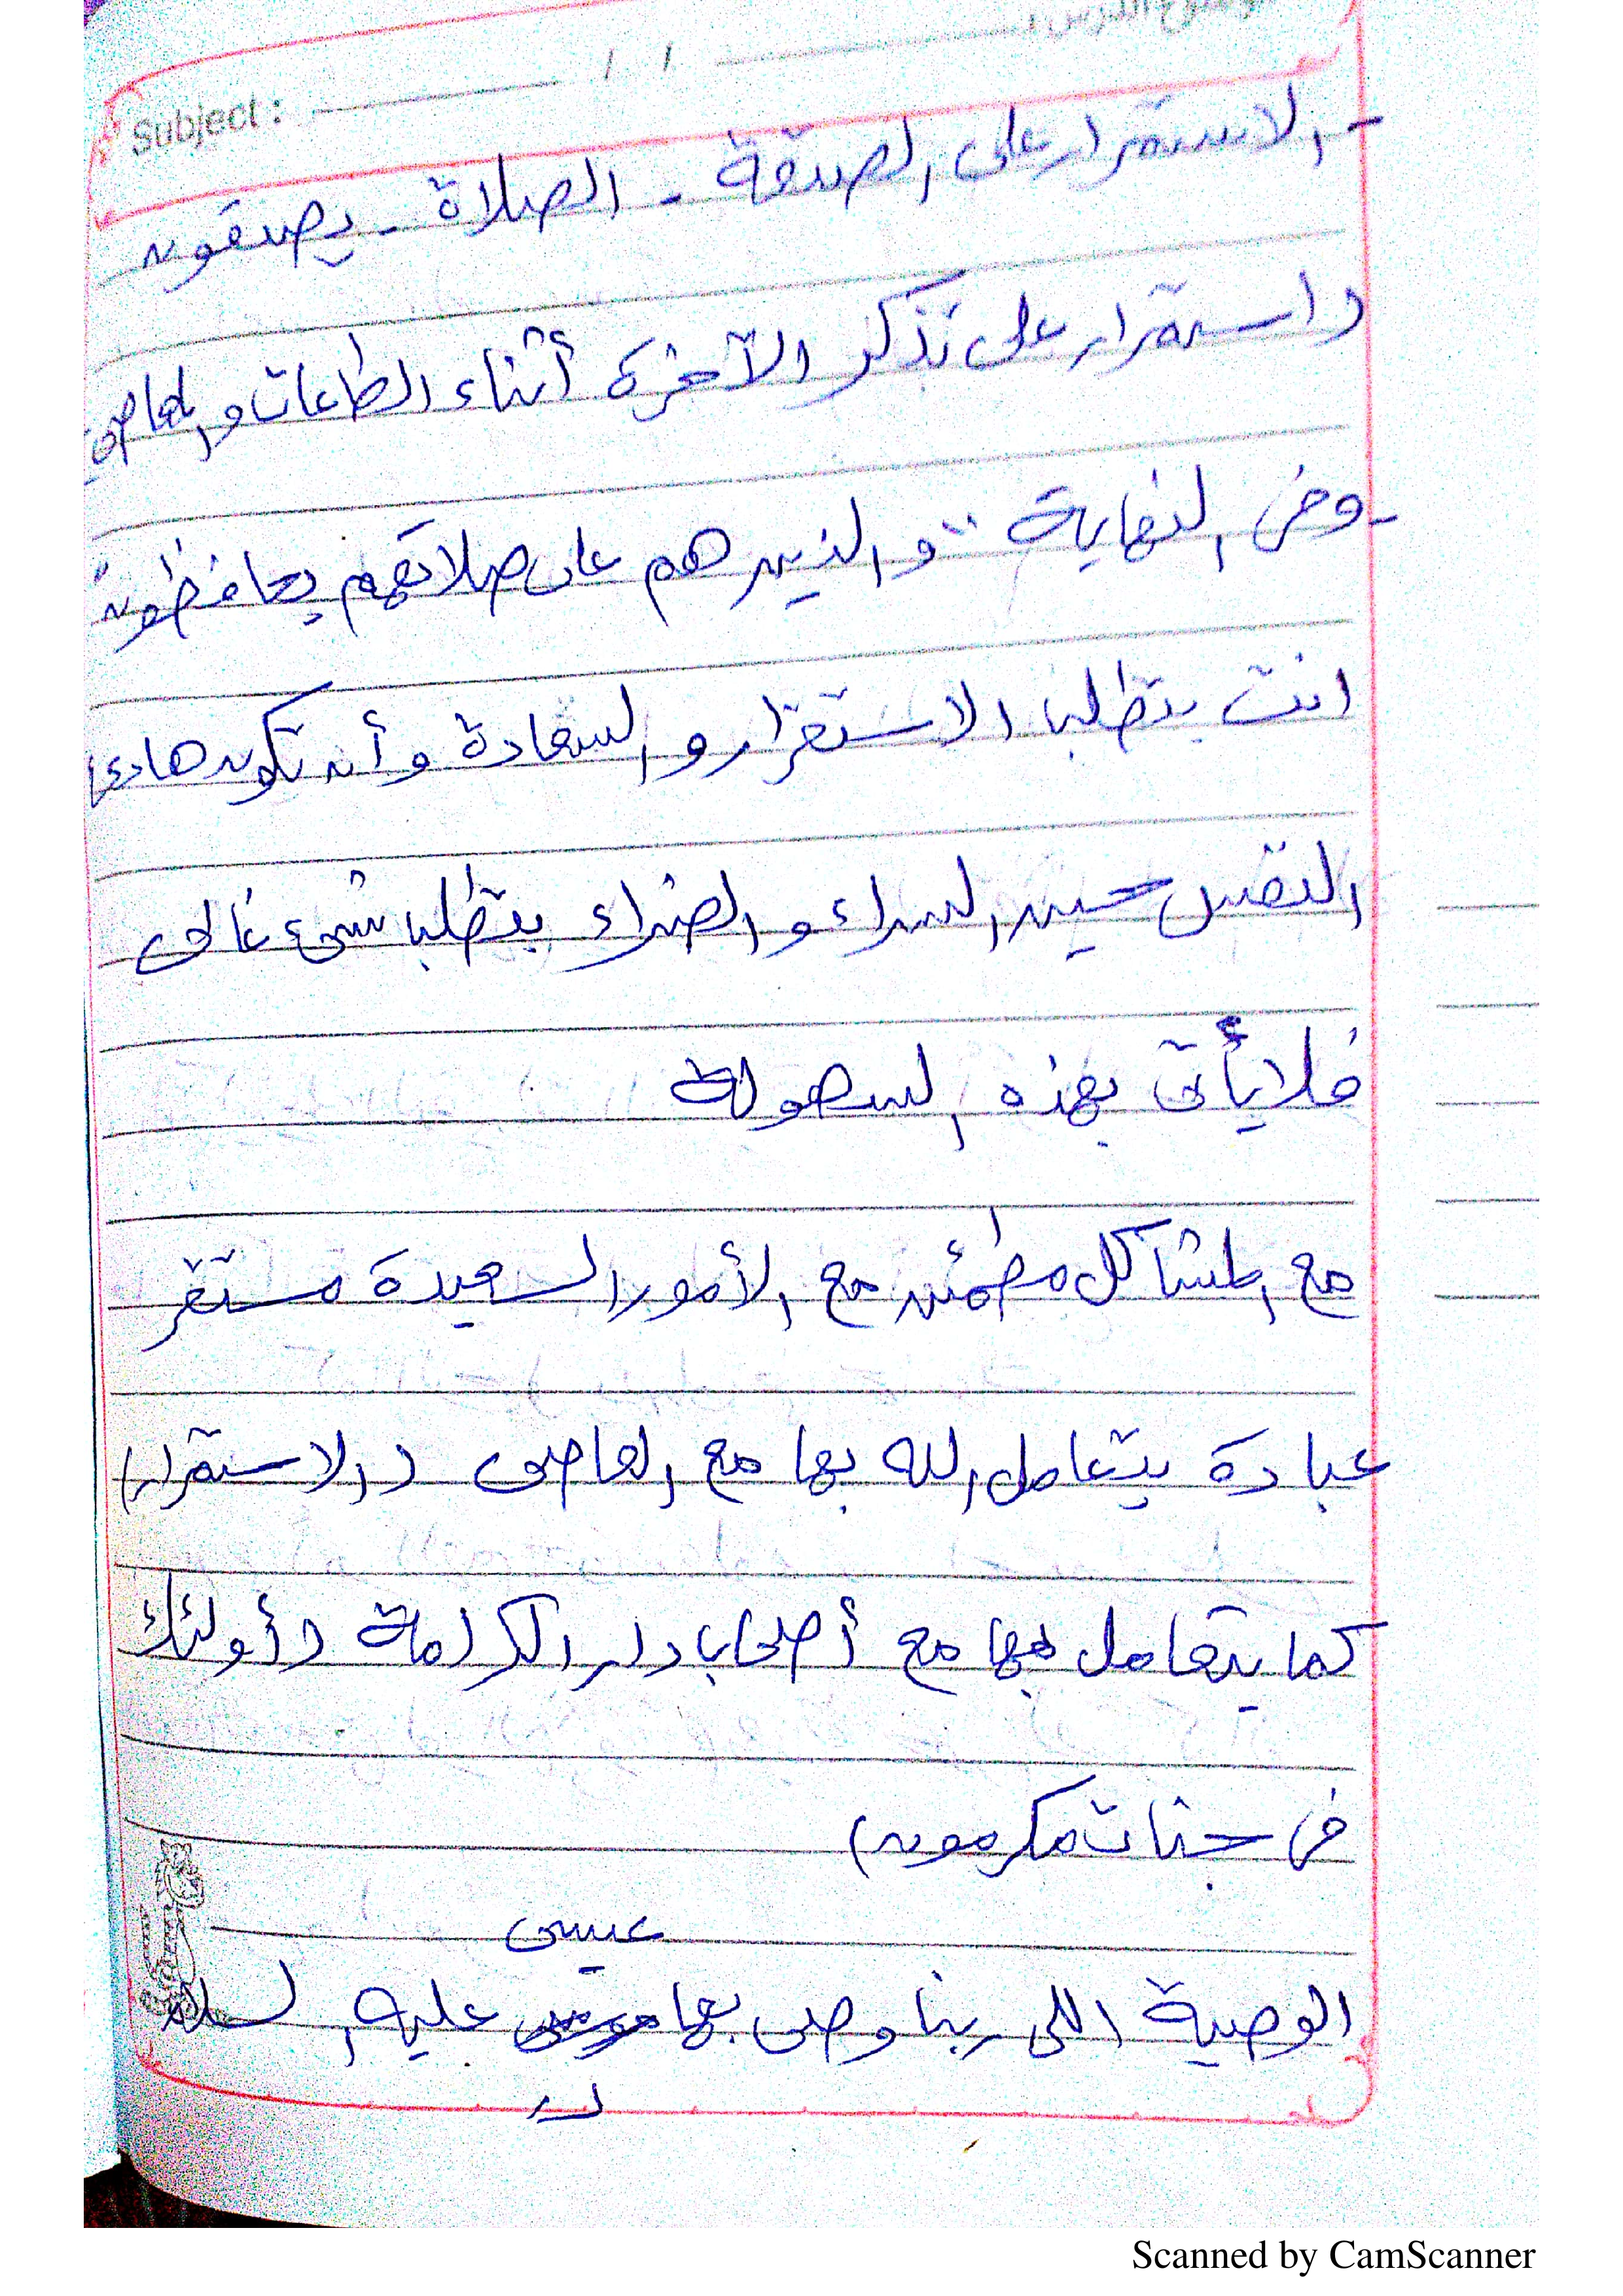 موضوع الدرس :
Subject : / /
- الاستمرار على الصدقة - الصلاة - يصدقون
( استمرار على تذكر الآخرة أثناء الطاعات والمعاصى
- وفى النهاية " والذين هم على صلاتهم يحافظون "
انت بتطلب الاستقرار والسعادة وأن تكون هادئ
النفس حين السراء والضراء بتطلب شىء غالى
فلا يأتى بهذه السهولة
مع المشاكل مطمئن مع الأمور السعيدة مستقر
عبادة يتعامل الله بها مع العاصى ( الاستمرار )
كما يتعامل بها مع أصحاب دار الكرامة ( أولئك
فى جنات مكرمون )
عيسى
الوصية اللى ربنا وصى بها عليه السلام
Scanned by CamScanner